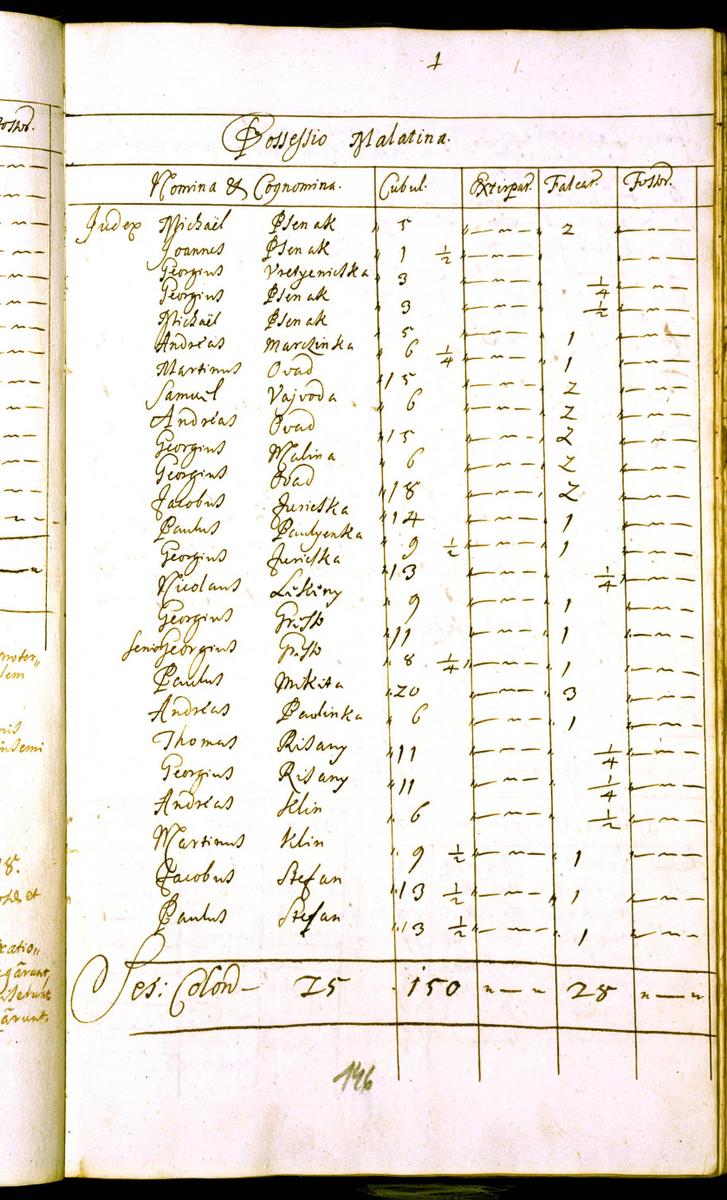 1
Possessio Malatina.
Nomina & Cognomina. Cubul. Extirpat. Falcat. Fossor.
Judex Michaël Psenak 5 2
Joannes Psenak 1 1/2
Georgius 3 1/4
Georgius Psenak 3 1/2
Michaël Psenak 5 1
Andreas Marczinka 6 1/4 1
Martinus Ovad 15 2
Samuel Vajvoda 6 2
Andreas Ovad 15 2
Georgius Malina 6 2
Georgius Ovad 18 2
Jacobus Juricska 14 1
Paulus Paulyenka 9 1/2 1
Georgius Juricska 13 1/4
Nicolaus 9 1
Georgius 11 1
Senior Georgius 8 1/4 1
Paulus Mikita 20 3
Andreas Paulinka 6 1
Thomas Risany 11 1/4
Georgius Risany 11 1/4
Andreas Klin 6 1/2
Martinus Klin 9 1/2 1
Jacobus Stefan 13 1/2 1
Paulus Stefan 13 1/2 1
Ses: Colon 150 28
146